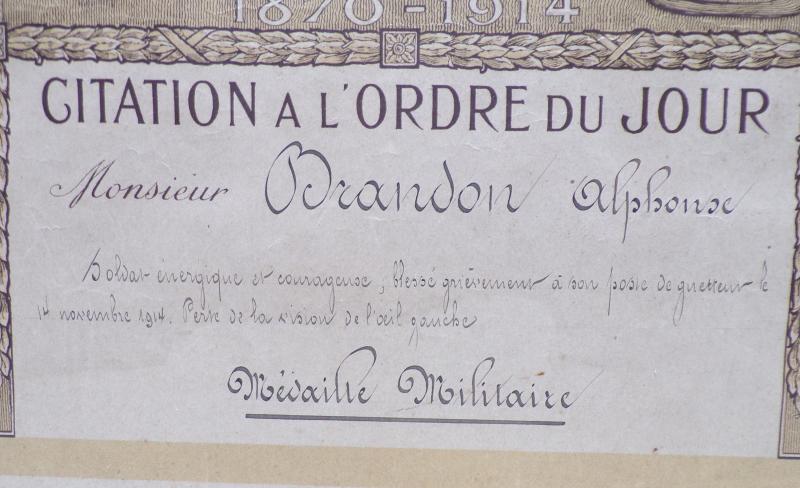 1870-1914
CITATION A L'ORDRE DU JOUR
Monsieur Brandon Alphonse
Soldat énergique et courageuse, blessé grièvement à son poste de guetteur le
14 novembre 1914. Perte de la vision de l'œil gauche
Médaille Militaire